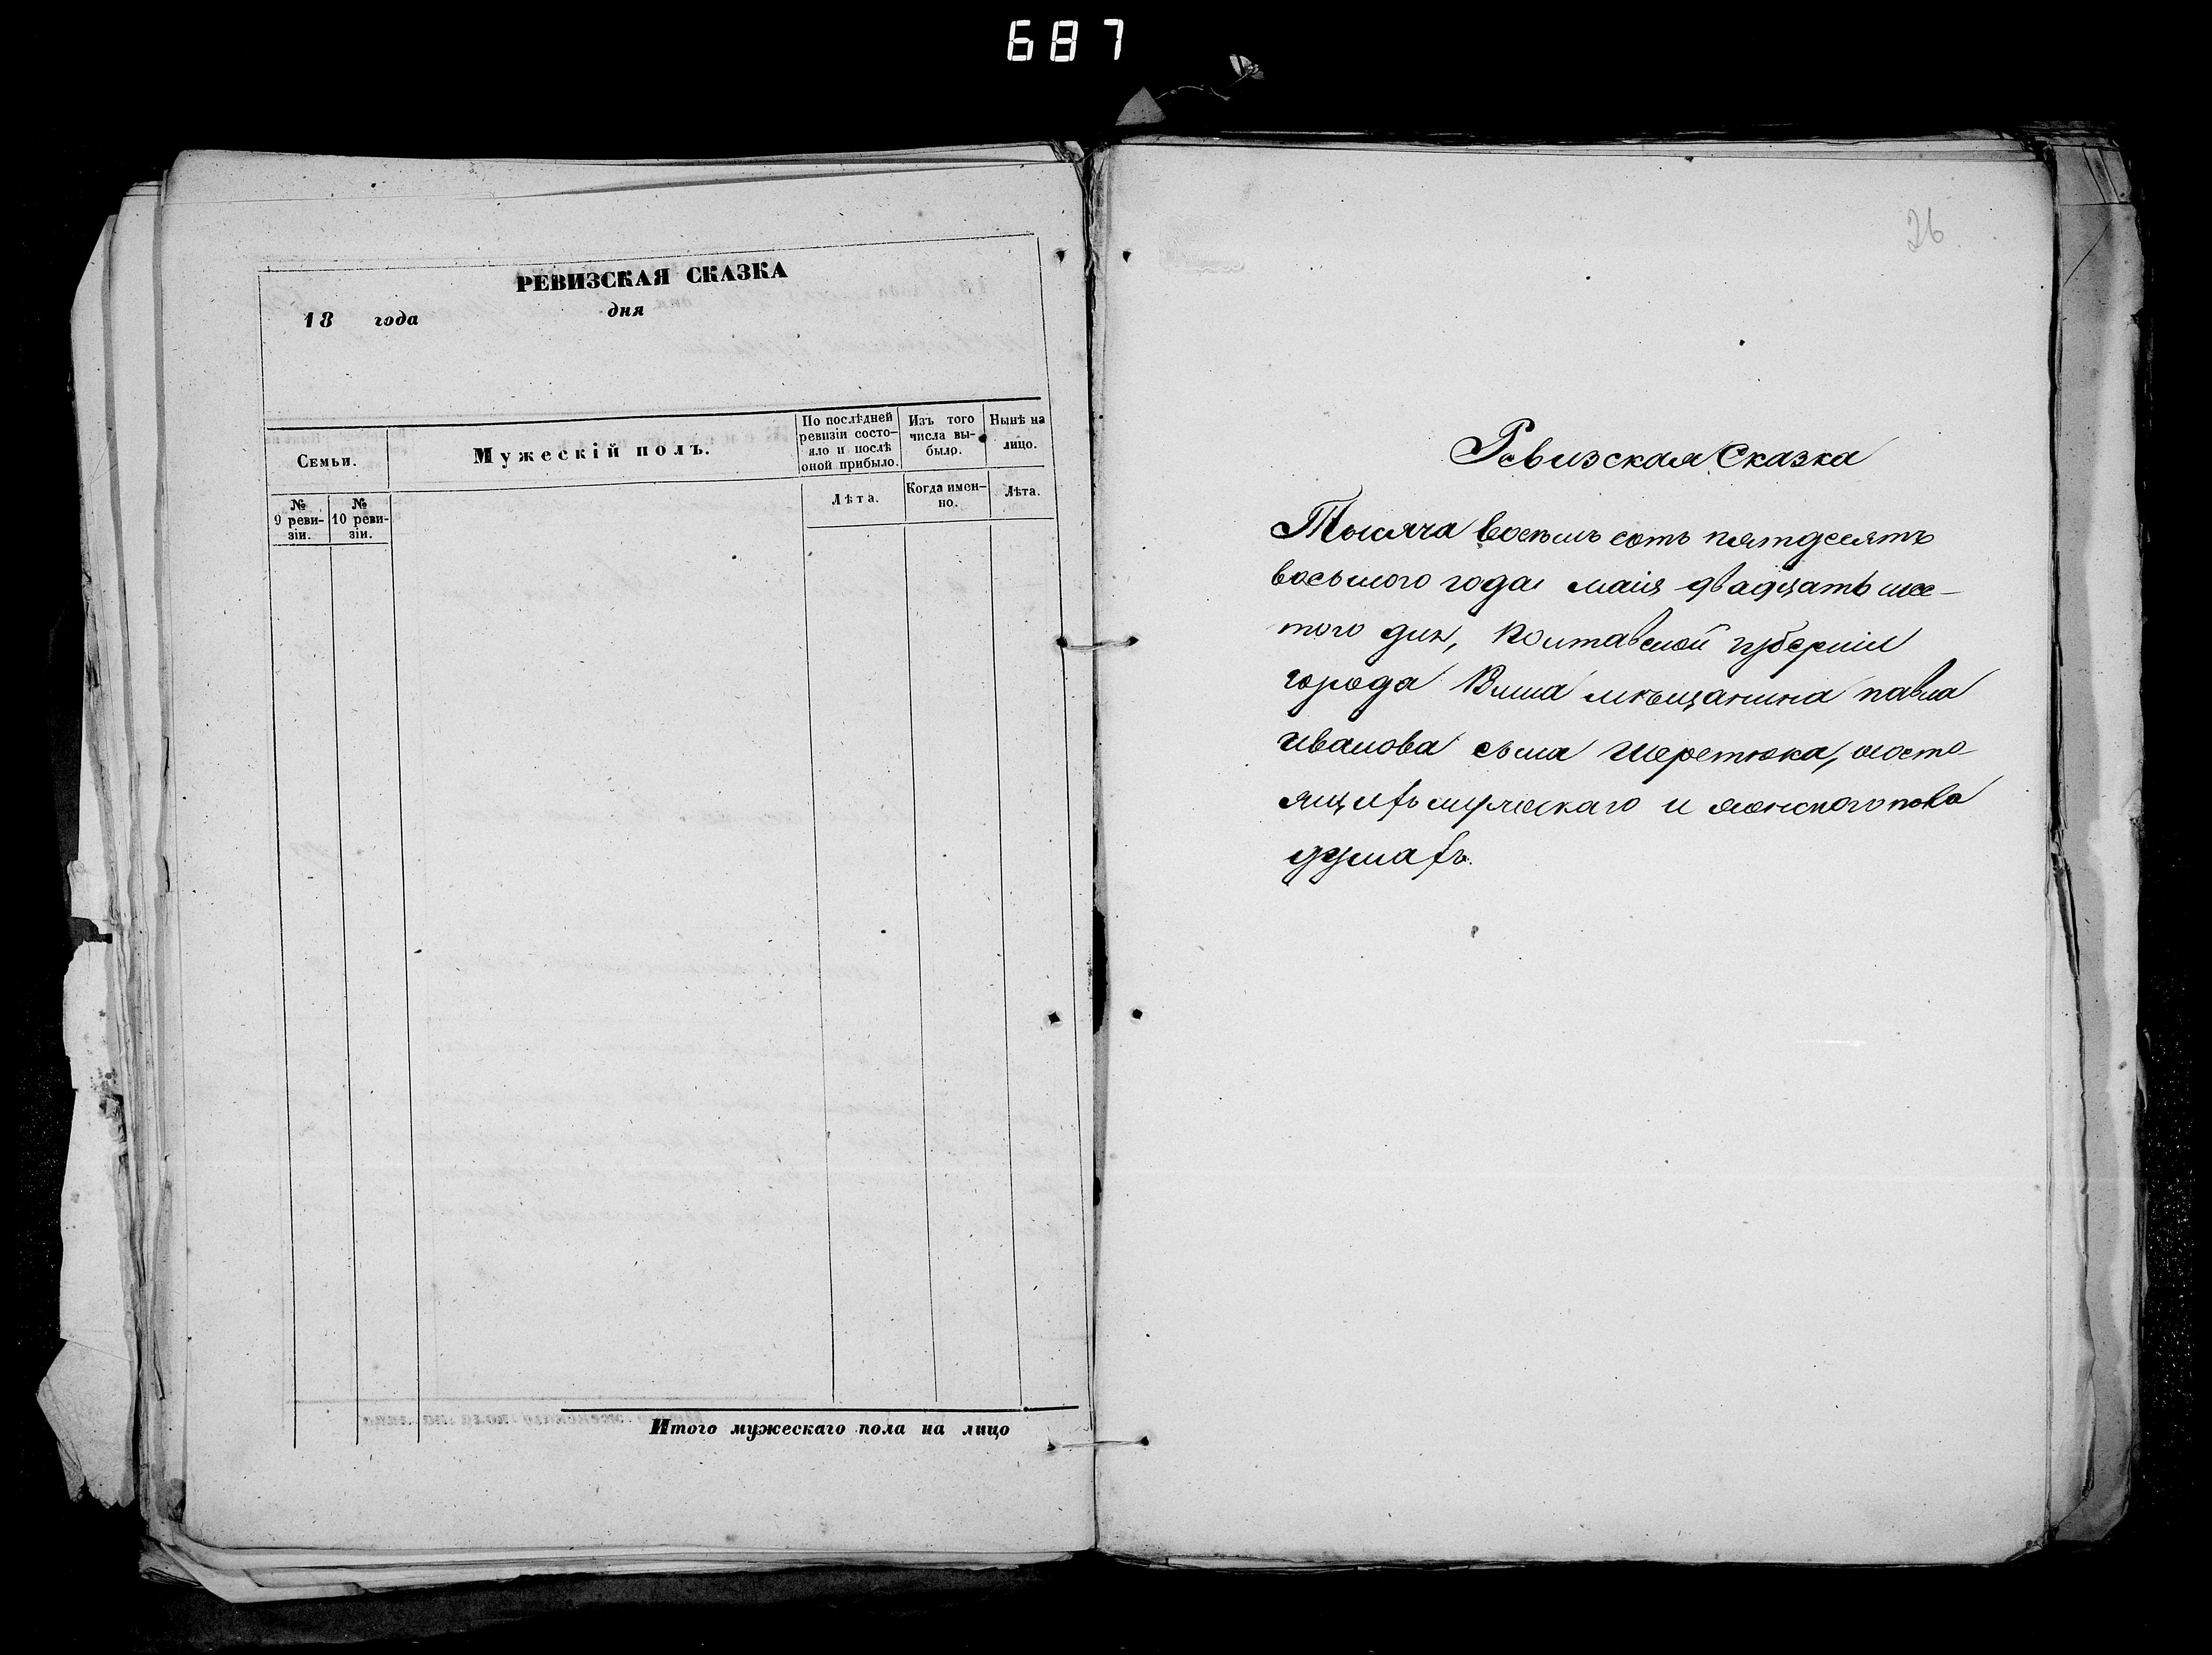 687
РЕВИЗСКАЯ СКАЗКА
18 года дня
Семьи.
Мужескій полъ.
По послѣдней ревизіи состо-яло и послѣ оной прибыло.
Изъ того числа вы-было.
Нынѣ на лицо.
№ 9 реви-зіи.
№ 10 реви-зіи.
Лѣта.
Когда имен-но.
Лѣта.
Итого мужескаго пола на лицо
26
Ревизская Сказка
Тысяча восемь сотъ пятдесятъ
восьмого года маія двадцать шес-
того дня, Полтавской губерніи
города мѣщанина павла
иванова сына Шеретюка, состо-
ящихъ мужескаго и женского пола
душахъ.